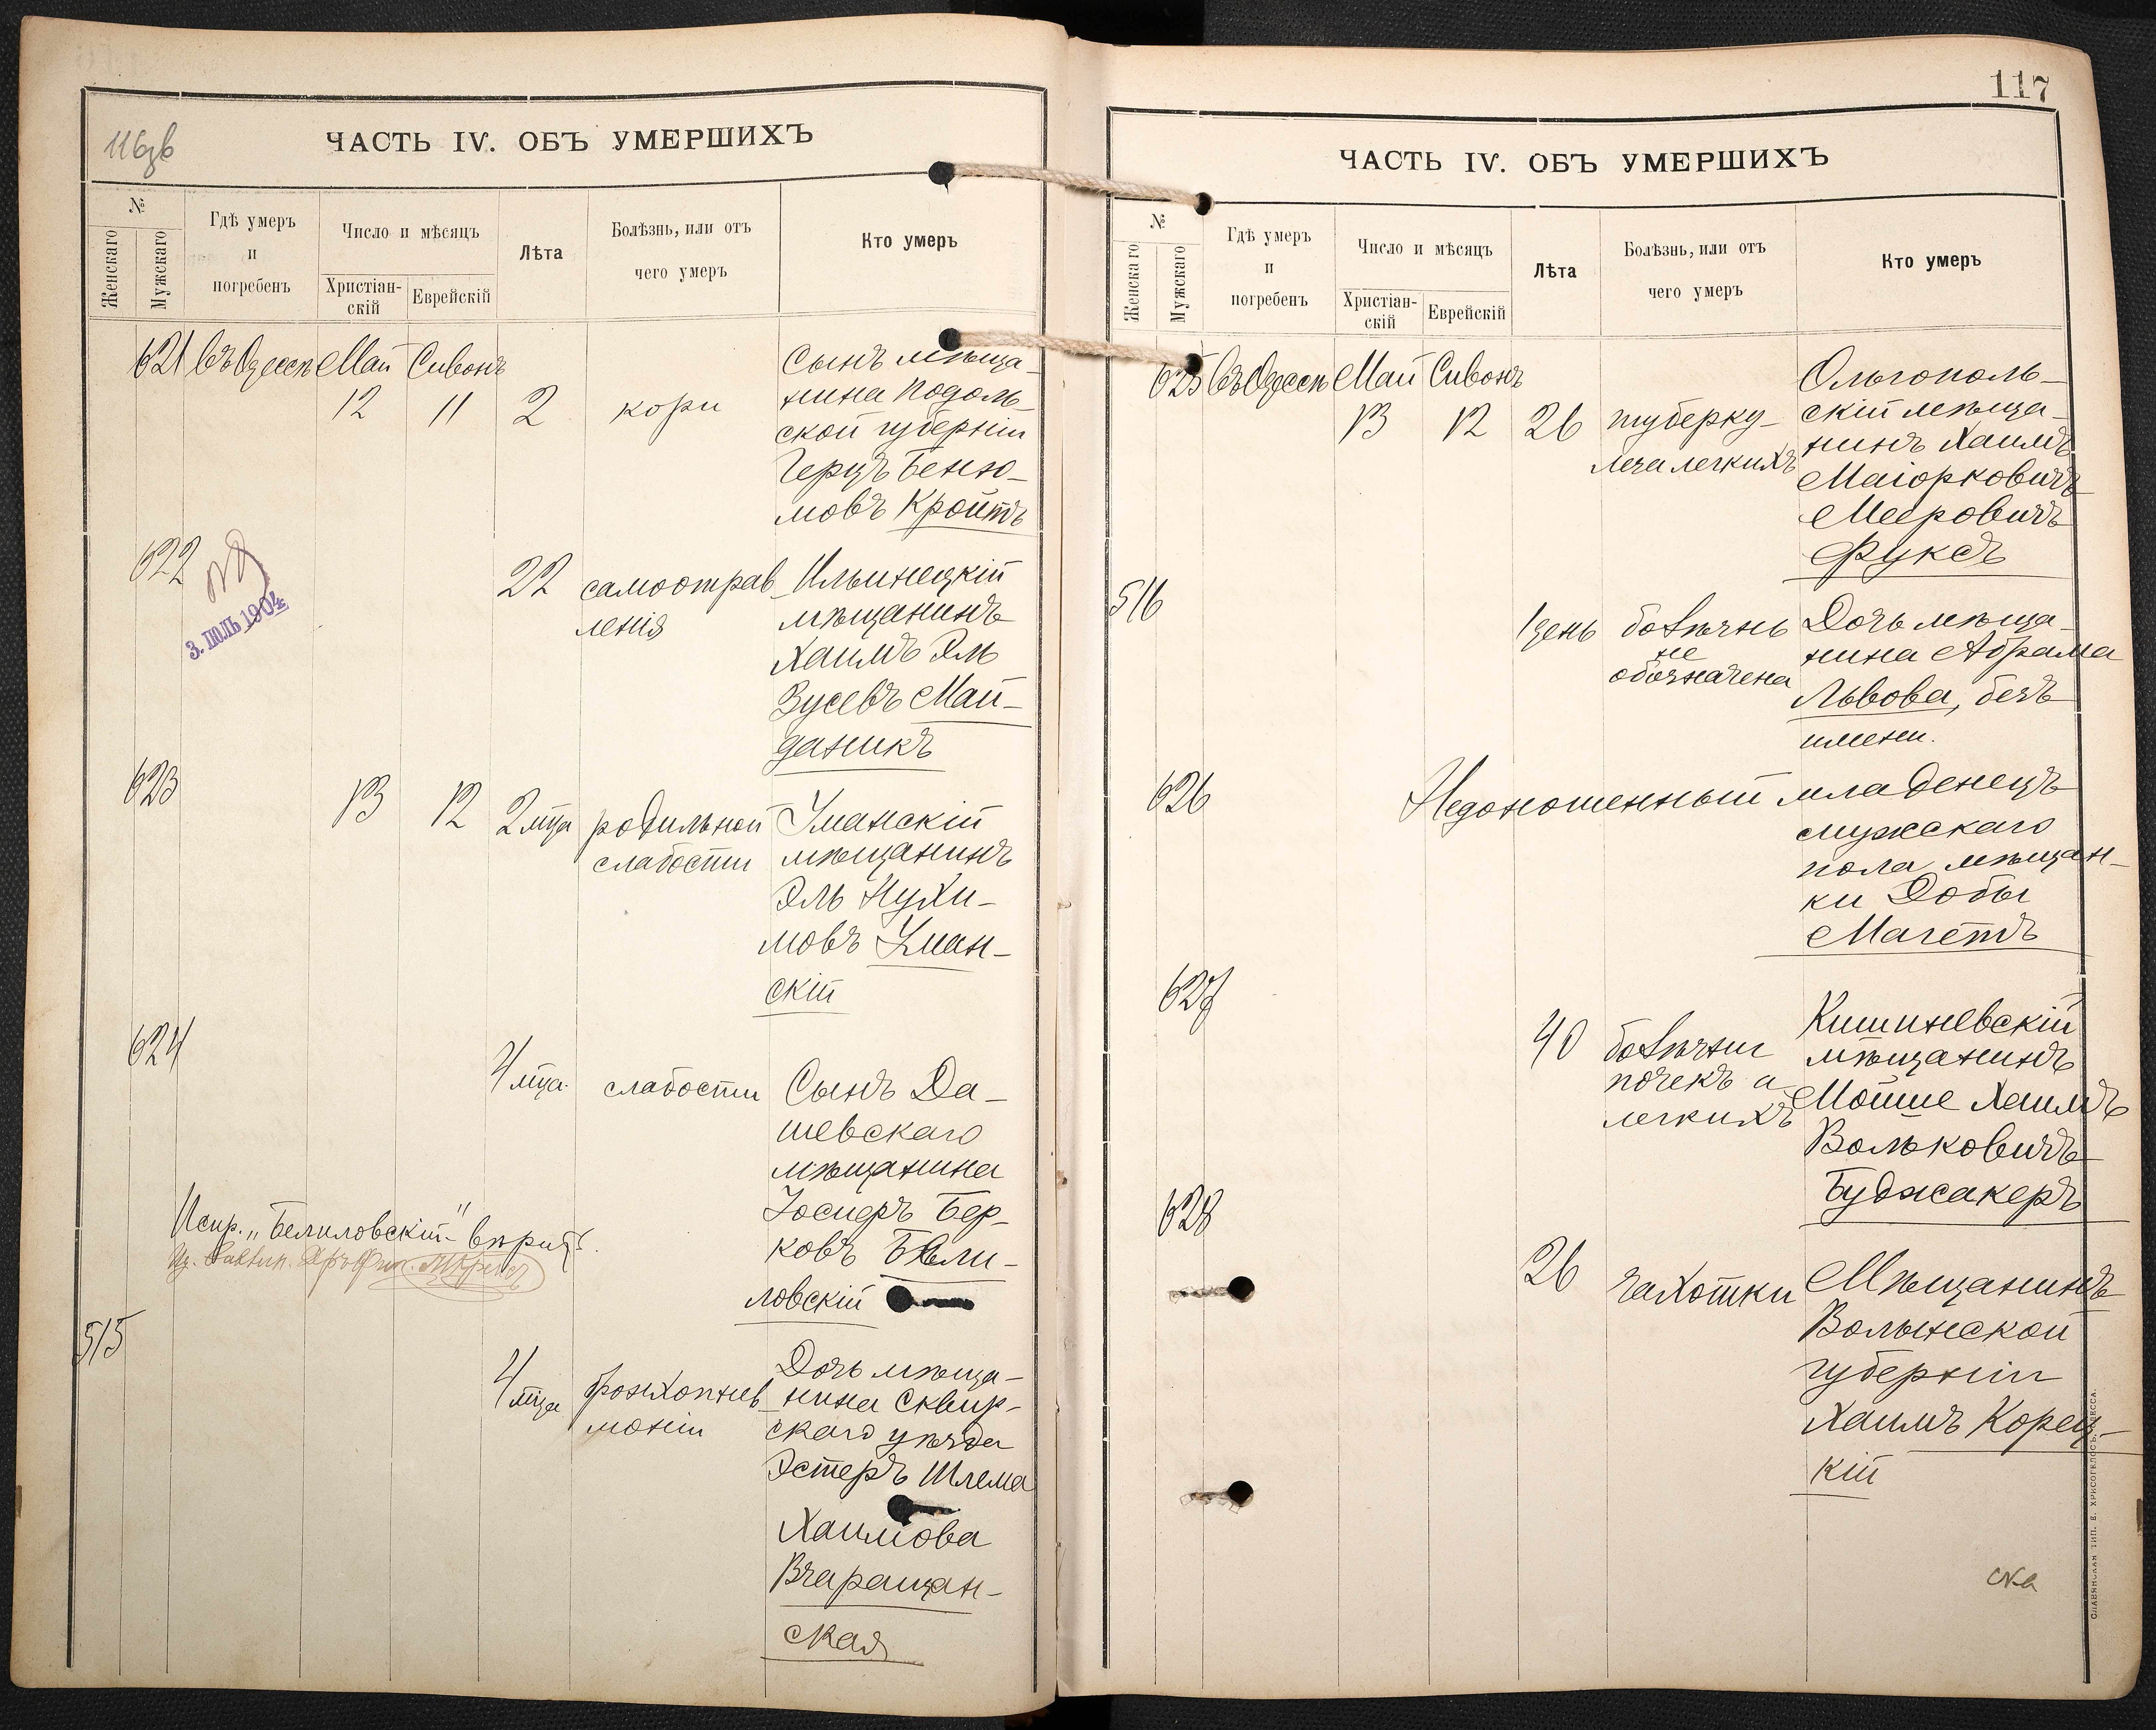 116 об
ЧАСТЬ IV. ОБЪ УМЕРШИХЪ
№
Женскаго
Мужскаго
Гдѣ умеръ
и
погребенъ
Число и мѣсяцъ
Христіан-
скій
Еврейскій
Лѣта
Болѣзнь, или отъ
чего умеръ
Кто умеръ
621 Въ Одессѣ Май Сивонъ
12 11 2 кори
Сынъ мѣща-
нина Подоль-
ской губерніи
Герцъ Беню-
мовъ Кройтъ
622
3. ІЮЛЬ 1904
22 самоотрав-
ленія
Ильинецкій
мѣщанинъ
Хаимъ Эль
Зусевъ Май-
даникъ
623 13 12 2 мѣца родильной
слабости
Уманскій
мѣщанинъ
Эль Нухи-
мовъ Уман-
скій
624
4 мѣца. слабости
Сынъ Да-
шевскаго
мѣщанина
Іосифъ Бер-
ковъ Бели-
ловскій
Испр. „Белиловскій“ вѣрить.
515
4 мѣца бронхопнев-
моніи
Дочь мѣща-
нина Сквир-
скаго уѣзда
Эстеръ Шлема
Хаимова
Вчерашан-
ская
117
ЧАСТЬ IV. ОБЪ УМЕРШИХЪ
№
Женскаго
Мужскаго
Гдѣ умеръ
и
погребенъ
Число и мѣсяцъ
Христіан-
скій
Еврейскій
Лѣта
Болѣзнь, или отъ
чего умеръ
Кто умеръ
625 Въ Одессѣ Май Сивонъ
13 12 26 туберку-
леза легкихъ
Ольгополь-
скій мѣща-
нинъ Хаимъ
Маіорковичъ
Мееровичъ
Фуксъ
516
1 день болѣзнь
не
обозначена
Дочь мѣща-
нина Абрама
Львова, безъ
имени.
626
Недоношенный младенецъ
мужескаго
пола мѣщан-
ки Добы
Магетъ
627
40 болѣзни
почекъ и
легкихъ
Кишиневскій
мѣщанинъ
Мойше Хаимъ
Вольковичъ
Буджакеръ
628
26 чахотки
Мѣщанинъ
Волынской
губерніи
Хаимъ Корец-
кій
СЛАВЯНСКАЯ ТИП. Е. ХРИСОГЕЛОСЪ, ОДЕССА.